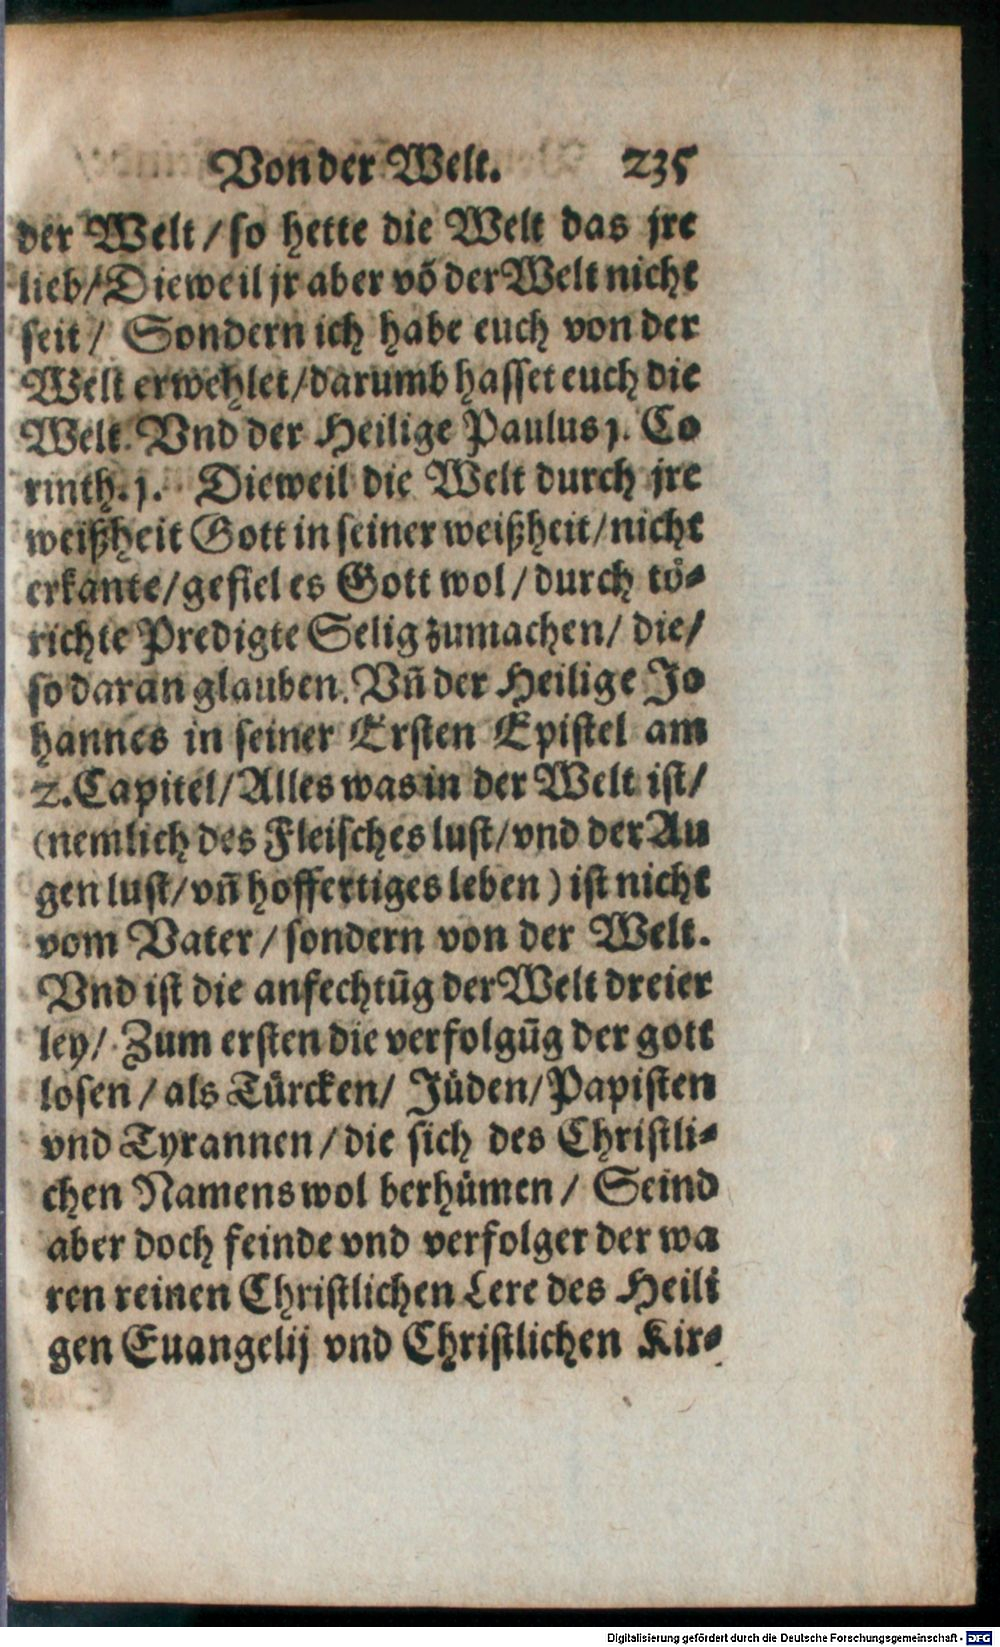 Von der Welt. 235
der Welt / so hette die Welt das jre
lieb / Dieweil jr aber võ der Welt nicht
seit / Sondern ich habe euch von der
Welt erwehlet / darumb hasset euch die
Welt. Vnd der Heilige Paulus j. Co
rinth. j. Dieweil die Welt durch jre
weißheit Gott in seiner weißheit / nicht
erkante / gefiel es Gott wol / durch tö-
richte Predigte Selig zumachen / die /
so daran glauben. Vñ der Heilige Jo
hannes in seiner Ersten Epistel am
2. Capitel / Alles was in der Welt ist /
(nemlich des Fleisches lust / vnd der Au
gen lust / vñ hoffertiges leben) ist nicht
vom Vater / sondern von der Welt.
Vnd ist die anfechtūg der Welt dreier
ley / Zum ersten die verfolgūg der gott
losen / als Türcken / Jüden / Papisten
vnd Tyrannen / die sich des Christli-
chen Namens wol berhümen / Seind
aber doch feinde vnd verfolger der wa
ren reinen Christlichen Lere des Heili
gen Euangelij vnd Christlichen Kir-
Digitalisierung gefördert durch die Deutsche Forschungsgemeinschaft - DFG